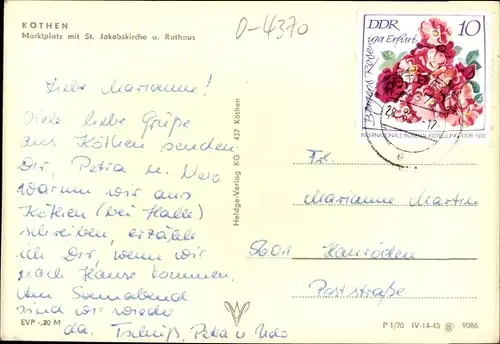 KÖTHEN
Marktplatz mit St. Jakobskirche u. Rathaus
D-4370
Liebe Marianne!
Viele liebe Grüße
aus Köthen senden
Dir, Petra u. Udo
warum wir aus
Köthen (bei Halle)
schreiben, erzähle
ich Dir, wenn wir
nach Hause kommen.
Am Sonnabend
sind wir wieder
da. Tschüß, Petra u. Udo
EVP -,20 M
Heldge-Verlag KG 437 Köthen
DDR 10
Bürgers Rose
iga Erfurt
INTERNATIONALE ROSENAUSSTELLUNG DDR 1972
Frl.
Marianne Martin
5601 Hauröden
Poststraße
P 1/70 IV-14-45 9086